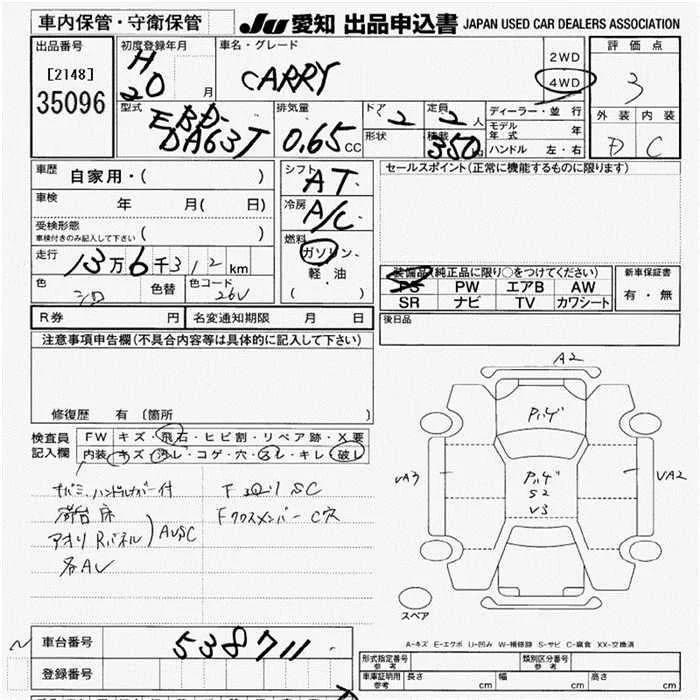 車内保管・守衛保管
JU 愛知 出品申込書 JAPAN USED CAR DEALERS ASSOCIATION
出品番号
[2148]
35096
初度登録年月
H 20 月
車名・グレード
CARRY
2WD
4WD
評価点
3
外装 内装
D C
型式
EBD-
DA63T
排気量
0.65 CC
ドア 2
形状
定員 2 人
積載 350 kg
ディーラー・並行
モデル年式 年
ハンドル 左・右
車歴
自家用・( )
車検 年 月( 日)
受検形態
車検付きのみ記入して下さい ( )
走行 13万6千312km
色 シロ 色替 色コード 26U
シフト AT
冷房 A/C
燃料
ガソリン
軽・油
( )
セールスポイント(正常に機能するものに限ります)
装備品(純正品に限り○をつけてください)
PS PW エアB AW
SR ナビ TV カワシート
新車保証書
有・無
後日品
R券 円 名変通知期限 月 日
注意事項申告欄(不具合内容等は具体的に記入して下さい)
修復歴 有 〔箇所 〕
検査員記入欄
FW キズ・飛石・ヒビ割・リペア跡・X要
内装 キズ・汚レ・コゲ・穴・スレ・キレ・破レ
サバミ、ハンドルカバー付
荷台 床
アオリ Rパネル
AUSC
各AU
SC
Fクロスメンバー C穴
A2
Pハゲ
Pハゲ
S2
V3
UA3
UA2
スペア
A-キズ E-エクボ U-凹み W-補修跡 S-サビ C-腐食 XX-交換済
車台番号 538711
登録番号
形式指定番号 参考
類別区分番号 参考
車庫証明用 参考 長さ cm 幅 cm 高さ cm